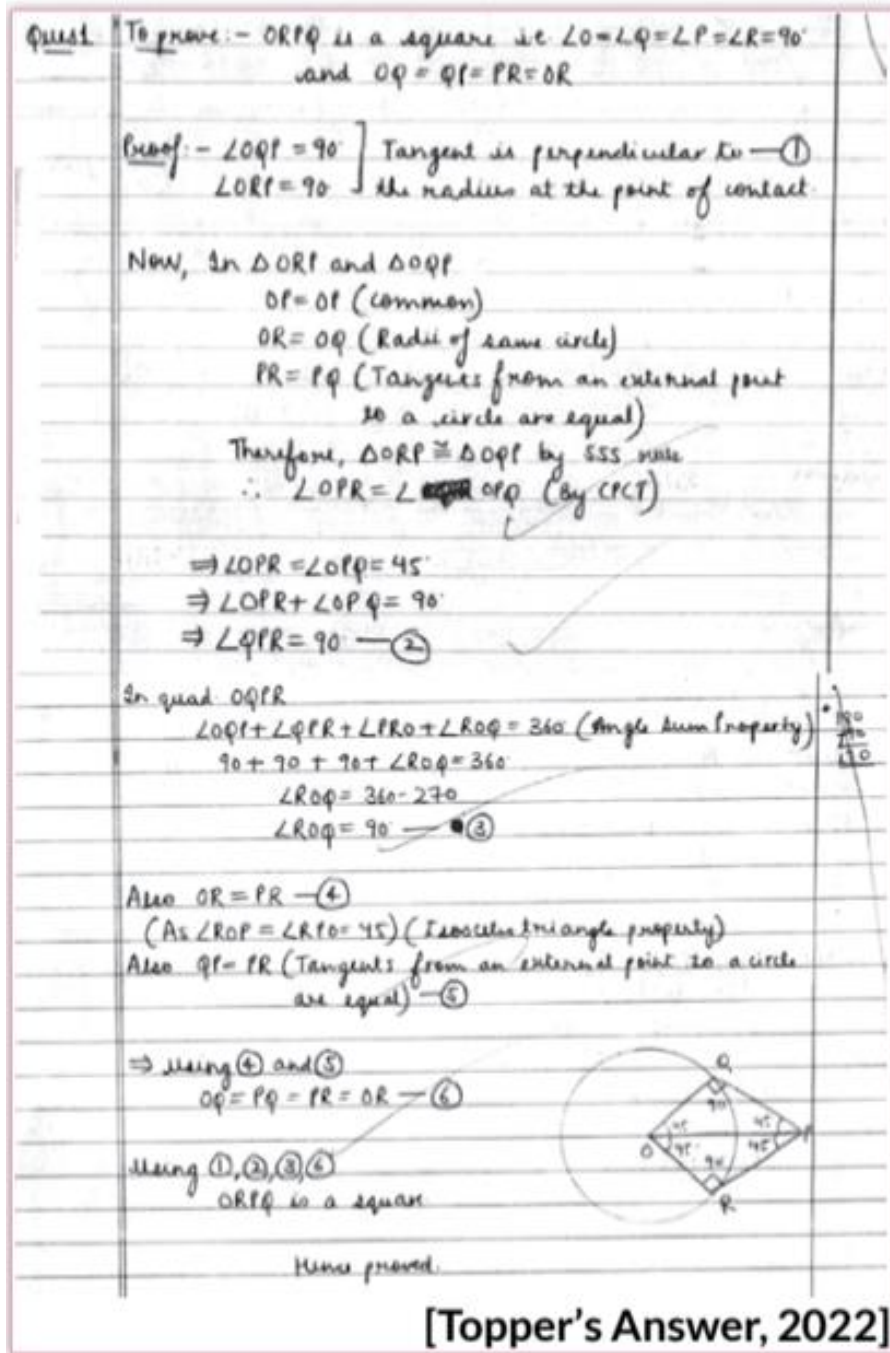 Ques1 To prove:- ORPQ is a square i.e. ∠O=∠Q=∠P=∠R=90°
and OQ = QP= PR= OR
Proof:- ∠OQP = 90° ] Tangent is perpendicular to —①
∠ORP= 90 the radius at the point of contact.
Now, In △ORP and △OQP
OP= OP (common)
OR= OQ (Radii of same circle)
PR= PQ (Tangents from an external point
to a circle are equal)
Therefore, △ORP ≅ △OQP by SSS rule
∴ ∠OPR= ∠ OPQ (By CPCT)
⇒ ∠OPR = ∠OPQ= 45°
⇒ ∠OPR+ ∠OPQ= 90°
⇒ ∠QPR= 90 —②
In quad. OQPR
∠OQP+∠QPR+∠PRO+∠ROQ = 360° (Angle Sum Property)
90+ 90 + 90+ ∠ROQ=360°
∠ROQ= 360-270
∠ROQ= 90° —③
Also OR= PR —④
(As ∠ROP = ∠RPO= 45) (Isosceles triangle property)
Also QP= PR (Tangents from an external point to a circle
are equal) —⑤
⇒ Using ④ and ⑤
OQ= PQ = PR= OR —⑥
Using ①,②,③,⑥
ORPQ is a square
Hence proved.
Q
90
45 45
O P
45 45
90
R
[Topper's Answer, 2022]